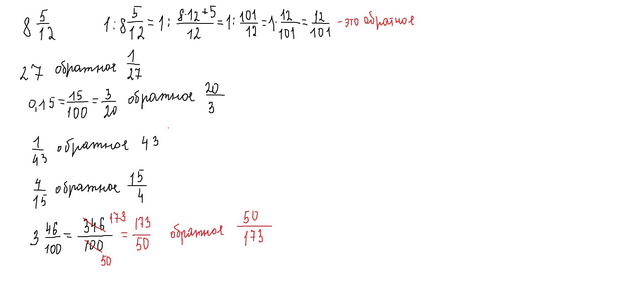 8 5/12 1:8 5/12 = 1: (8·12+5)/12 = 1: 101/12 = 1· 12/101 = 12/101 - это обратное
27 обратное 1/27
0,15 = 15/100 = 3/20 обратное 20/3
1/43 обратное 43
4/15 обратное 15/4
3 46/100 = 346/100 173 50 = 173/50 обратное 50/173